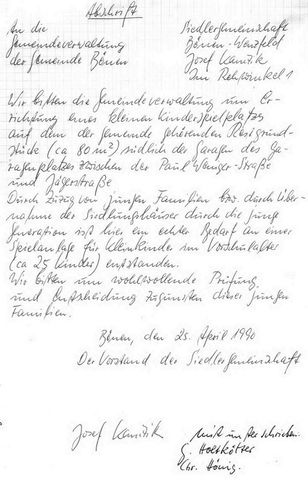 Abschrift
An die
Gemeindeverwaltung
der Gemeinde Bönen
Siedlergemeinschaft
Bönen-Westfeld
Josef Kamzik
Im Rehwinkel 1
Wir bitten die Gemeindeverwaltung um Er-
richtung eines kleinen Kinderspielplatzes
auf dem der Gemeinde gehörenden Restgrund-
stücke (ca 80 m²) südlich der Garagen des Ga-
ragenplatzes zwischen der Paul Wenger-Straße
und Jägerstraße
Durch Zuzug von jungen Familien bzw. durch Über-
nahme der Siedlungshäuser durch die junge
Generation ist hier ein echter Bedarf an einer
Spielanlage für Kleinkinder im Vorschulalter
(ca 25 Kinder) entstanden.
Wir bitten um wohlwollende Prüfung
und Entscheidung zugunsten dieser jungen
Familien.
Bönen, den 25. April 1990
Der Vorstand der Siedlergemeinschaft
Josef Kamzik
mit unterschrieben
G. Holtkötter
Chr. Hönig.